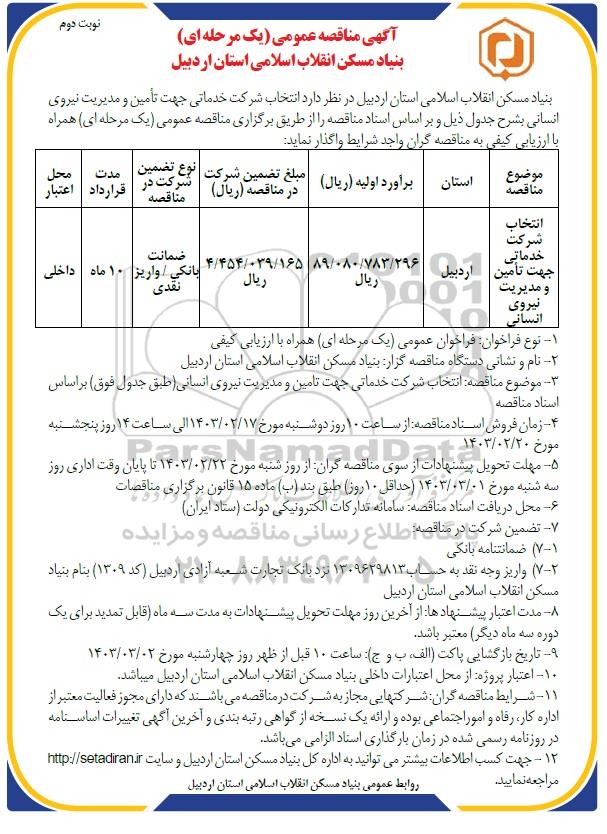 نوبت دوم
آگهی مناقصه عمومی (یک مرحله ای)
بنیاد مسکن انقلاب اسلامی استان اردبیل
بنیاد مسکن انقلاب اسلامی استان اردبیل در نظر دارد انتخاب شرکت خدماتی جهت تأمین و مدیریت نیروی
انسانی بشرح جدول ذیل و بر اساس اسناد مناقصه را از طریق برگزاری مناقصه عمومی (یک مرحله ای) همراه
با ارزیابی کیفی به مناقصه گران واجد شرایط واگذار نماید:
موضوع مناقصه | استان | برآورد اولیه (ریال) | مبلغ تضمین شرکت در مناقصه (ریال) | نوع تضمین شرکت در مناقصه | مدت قرارداد | محل اعتبار
انتخاب شرکت خدماتی جهت تأمین و مدیریت نیروی انسانی | اردبیل | ۸۹/۰۸۰/۷۸۳/۲۹۶ ریال | ۴/۴۵۴/۰۳۹/۱۶۵ ریال | ضمانت بانکی / واریز نقدی | ۱۰ ماه | داخلی
۱- نوع فراخوان: فراخوان عمومی (یک مرحله ای) همراه با ارزیابی کیفی
۲- نام و نشانی دستگاه مناقصه گزار: بنیاد مسکن انقلاب اسلامی استان اردبیل
۳- موضوع مناقصه: انتخاب شرکت خدماتی جهت تامین و مدیریت نیروی انسانی(طبق جدول فوق) براساس
اسناد مناقصه
۴-زمان فروش اسناد مناقصه:از ساعت ۱۰روز دوشنبه مورخ ۱۴۰۳/۰۲/۱۷الی ساعت ۱۴روز پنجشنبه
مورخ ۱۴۰۳/۰۲/۲۰
۵- مهلت تحویل پیشنهادات از سوی مناقصه گران: از روز شنبه مورخ ۱۴۰۳/۰۲/۲۲ تا پایان وقت اداری روز
سه شنبه مورخ ۱۴۰۳/۰۳/۰۱ (حداقل ۱۰روز) طبق بند (ب) ماده ۱۵ قانون برگزاری مناقصات
۶- محل دریافت اسناد مناقصه: سامانه تدارکات الکترونیکی دولت (ستاد ایران)
۷- تضمین شرکت در مناقصه:
۷-۱) ضمانتنامه بانکی
۷-۲) واریز وجه نقد به حساب۱۳۰۹۶۲۹۸۱۳ نزد بانک تجارت شعبه آزادی اردبیل (کد ۱۳۰۹) بنام بنیاد
مسکن انقلاب اسلامی استان اردبیل
۸-مدت اعتبار پیشنهادها: از آخرین روز مهلت تحویل پیشنهادات به مدت سه ماه (قابل تمدید برای یک
دوره سه ماه دیگر) معتبر باشد.
۹- تاریخ بازگشایی پاکت (الف، ب و ج): ساعت ۱۰ قبل از ظهر روز چهارشنبه مورخ ۱۴۰۳/۰۳/۰۲
۱۰- اعتبار پروژه: از محل اعتبارات داخلی بنیاد مسکن انقلاب اسلامی استان اردبیل میباشد.
۱۱-شرایط مناقصه گران: شرکتهایی مجاز به شرکت در مناقصه می باشند که دارای مجوز فعالیت معتبر از
اداره کار، رفاه و امور اجتماعی بوده و ارائه یک نسخه از گواهی رتبه بندی و آخرین آگهی تغییرات اساسنامه
در روزنامه رسمی شده در زمان بارگذاری اسناد الزامی می‌باشد.
۱۲ - جهت کسب اطلاعات بیشتر می توانید به اداره کل بنیاد مسکن استان اردبیل و سایت http://setadiran.ir
مراجعه‌نمایید.
روابط عمومی بنیاد مسکن انقلاب اسلامی استان اردبیل
ParsNamadData
پایگاه اطلاع رسانی مناقصه و مزایده
۰۲۱-۸۸۳۴۹۶۷۰-۵